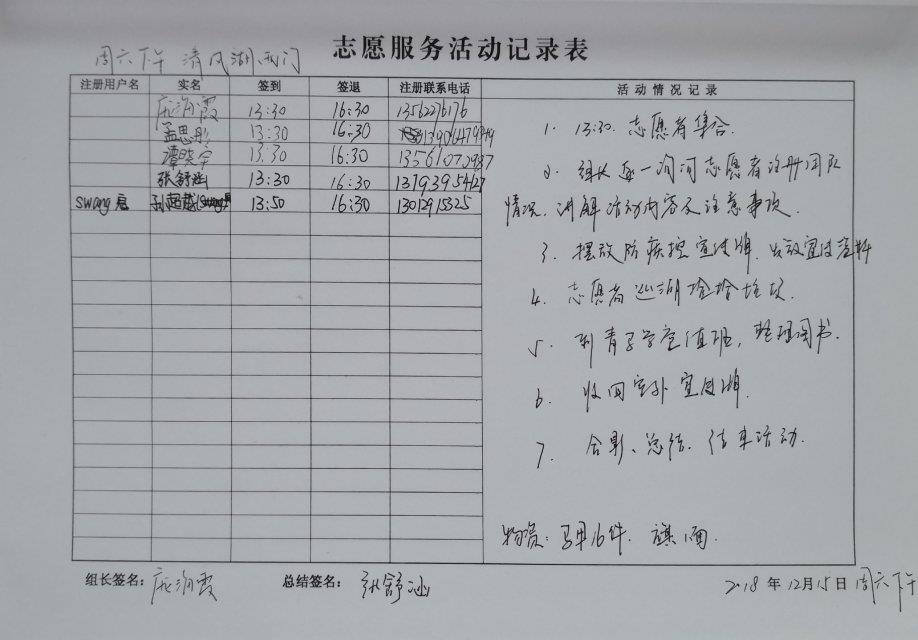 志愿服务活动记录表
周六下午 清风湖西门
注册用户名 实名 签到 签退 注册联系电话 活动情况记录
庞海霞 13:30 16:30 13562276176
孟思彤 13:30 16:30
谭晓宇 13:30 16:30
张舒涵 13:30 16:30 13793954127
swang君 孙超越 13:50 16:30 13012915325
1. 13:30. 志愿者集合.
2. 组长逐一询问志愿者注册团队
情况. 讲解活动内容及注意事项.
3. 摆放防疾控宣传牌. 发放宣传资料
4. 志愿者巡湖捡拾垃圾.
5. 到青子学堂值班, 整理图书.
6. 收回室外宣传牌.
7. 合影、总结. 结束活动.
物资: 马甲16件. 旗1面.
组长签名: 庞海霞 总结签名: 张舒涵 2018年12月15日 周六下午